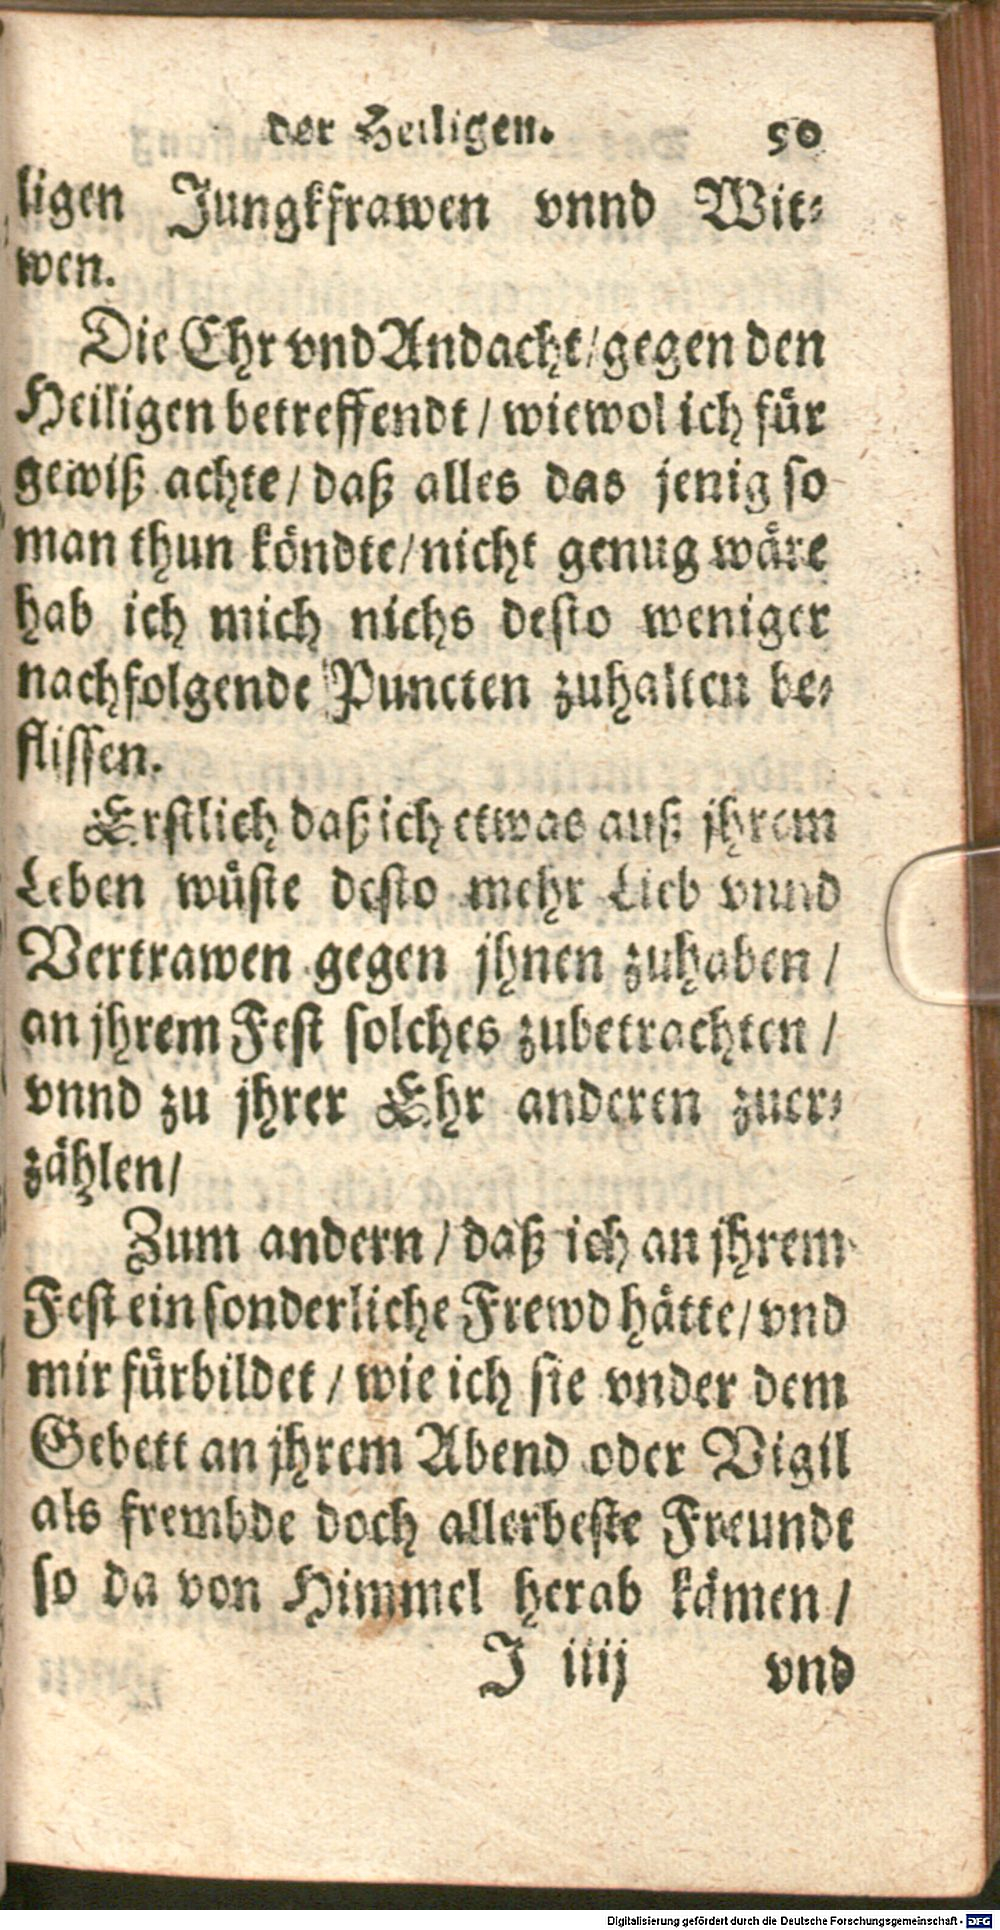 der Heiligen. 50
ligen Jungkfrawen vnnd Wit-
wen.
Die Ehr vnd Andacht/gegen den
Heiligen betreffendt / wiewol ich für
gewiß achte/ daß alles das jenig so
man thun köndte/nicht genug wäre
hab ich mich nichs desto weniger
nachfolgende Puncten zuhalten be-
flissen.
Erstlich daß ich etwas auß jhrem
Leben wüste desto mehr Lieb vnnd
Vertrawen gegen jhnen zuhaben /
an jhrem Fest solches zubetrachten /
vnnd zu jhrer Ehr anderen zuer-
zählen/
Zum andern / daß ich an jhrem
Fest ein sonderliche Frewd hätte/vnd
mir fürbildet / wie ich sie vnder dem
Gebett an jhrem Abend oder Vigil
als frembde doch allerbeste Freundt
so da von Himmel herab kämen /
J iiij vnd
Digitalisierung gefördert durch die Deutsche Forschungsgemeinschaft - DFG